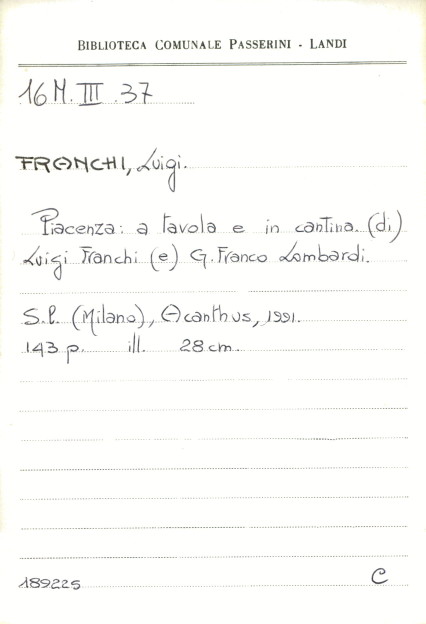 BIBLIOTECA COMUNALE PASSERINI - LANDI
16 M. III .37
FRANCHI, Luigi.
Piacenza: a tavola e in cantina. (di)
Luigi Franchi (e) G. Franco Lombardi.
S.l. (Milano), Acanthus, 1991.
143 p. ill. 28 cm.
189225 C